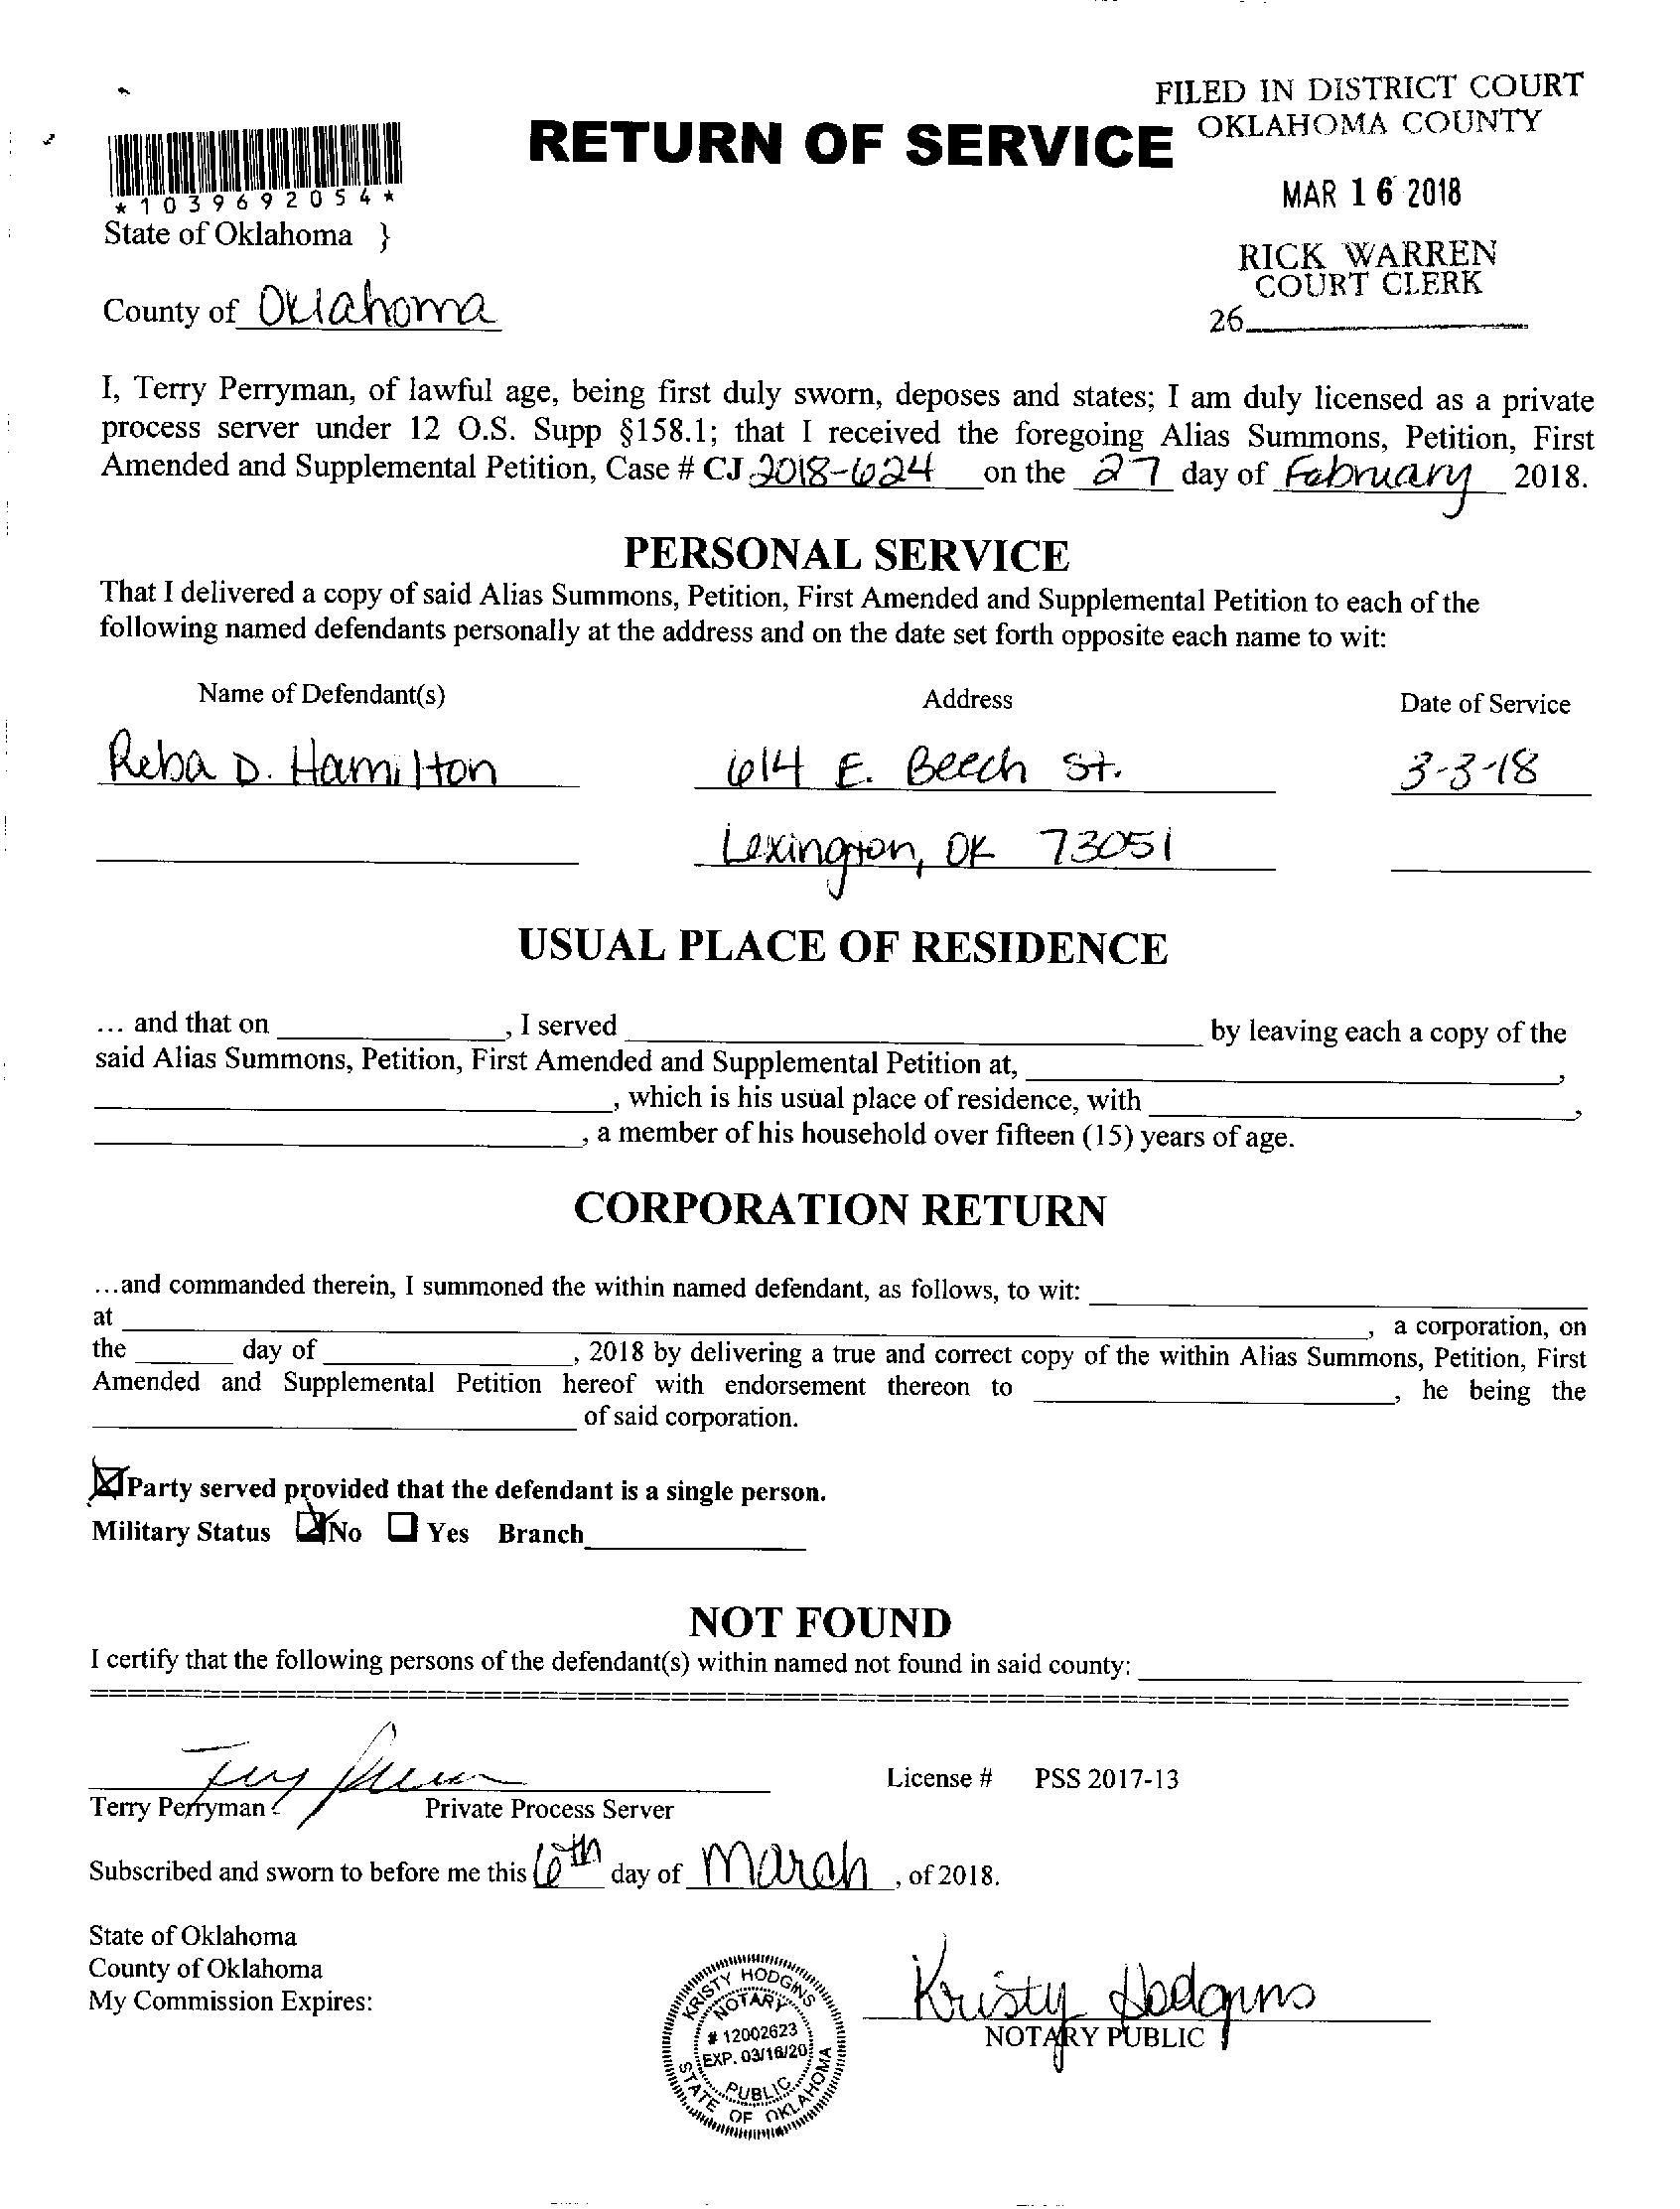 FILED IN DISTRICT COURT
OKLAHOMA COUNTY
RETURN OF SERVICE
MAR 16 2018
*1039692054*
State of Oklahoma }
RICK WARREN
COURT CLERK
County of Oklahoma
26
I, Terry Perryman, of lawful age, being first duly sworn, deposes and states; I am duly licensed as a private
process server under 12 O.S. Supp §158.1; that I received the foregoing Alias Summons, Petition, First
Amended and Supplemental Petition, Case # CJ 2018-624 on the 27 day of February 2018.
PERSONAL SERVICE
That I delivered a copy of said Alias Summons, Petition, First Amended and Supplemental Petition to each of the
following named defendants personally at the address and on the date set forth opposite each name to wit:
Name of Defendant(s) Address Date of Service
Reba D. Hamilton 614 E. Beech St. 3-3-18
Lexington, OK 73051
USUAL PLACE OF RESIDENCE
... and that on , I served by leaving each a copy of the
said Alias Summons, Petition, First Amended and Supplemental Petition at, ,
, which is his usual place of residence, with ,
, a member of his household over fifteen (15) years of age.
CORPORATION RETURN
...and commanded therein, I summoned the within named defendant, as follows, to wit:
at , a corporation, on
the day of , 2018 by delivering a true and correct copy of the within Alias Summons, Petition, First
Amended and Supplemental Petition hereof with endorsement thereon to , he being the
of said corporation.
Party served provided that the defendant is a single person.
Military Status No Yes Branch
NOT FOUND
I certify that the following persons of the defendant(s) within named not found in said county:
Terry Perryman
License # PSS 2017-13
Terry Perryman Private Process Server
Subscribed and sworn to before me this 6th day of March , of 2018.
State of Oklahoma
County of Oklahoma
My Commission Expires:
KRISTY HODGINS
NOTARY
# 12002623
EXP. 03/16/20
PUBLIC
STATE OF OKLAHOMA
Kristy Hodgins
NOTARY PUBLIC